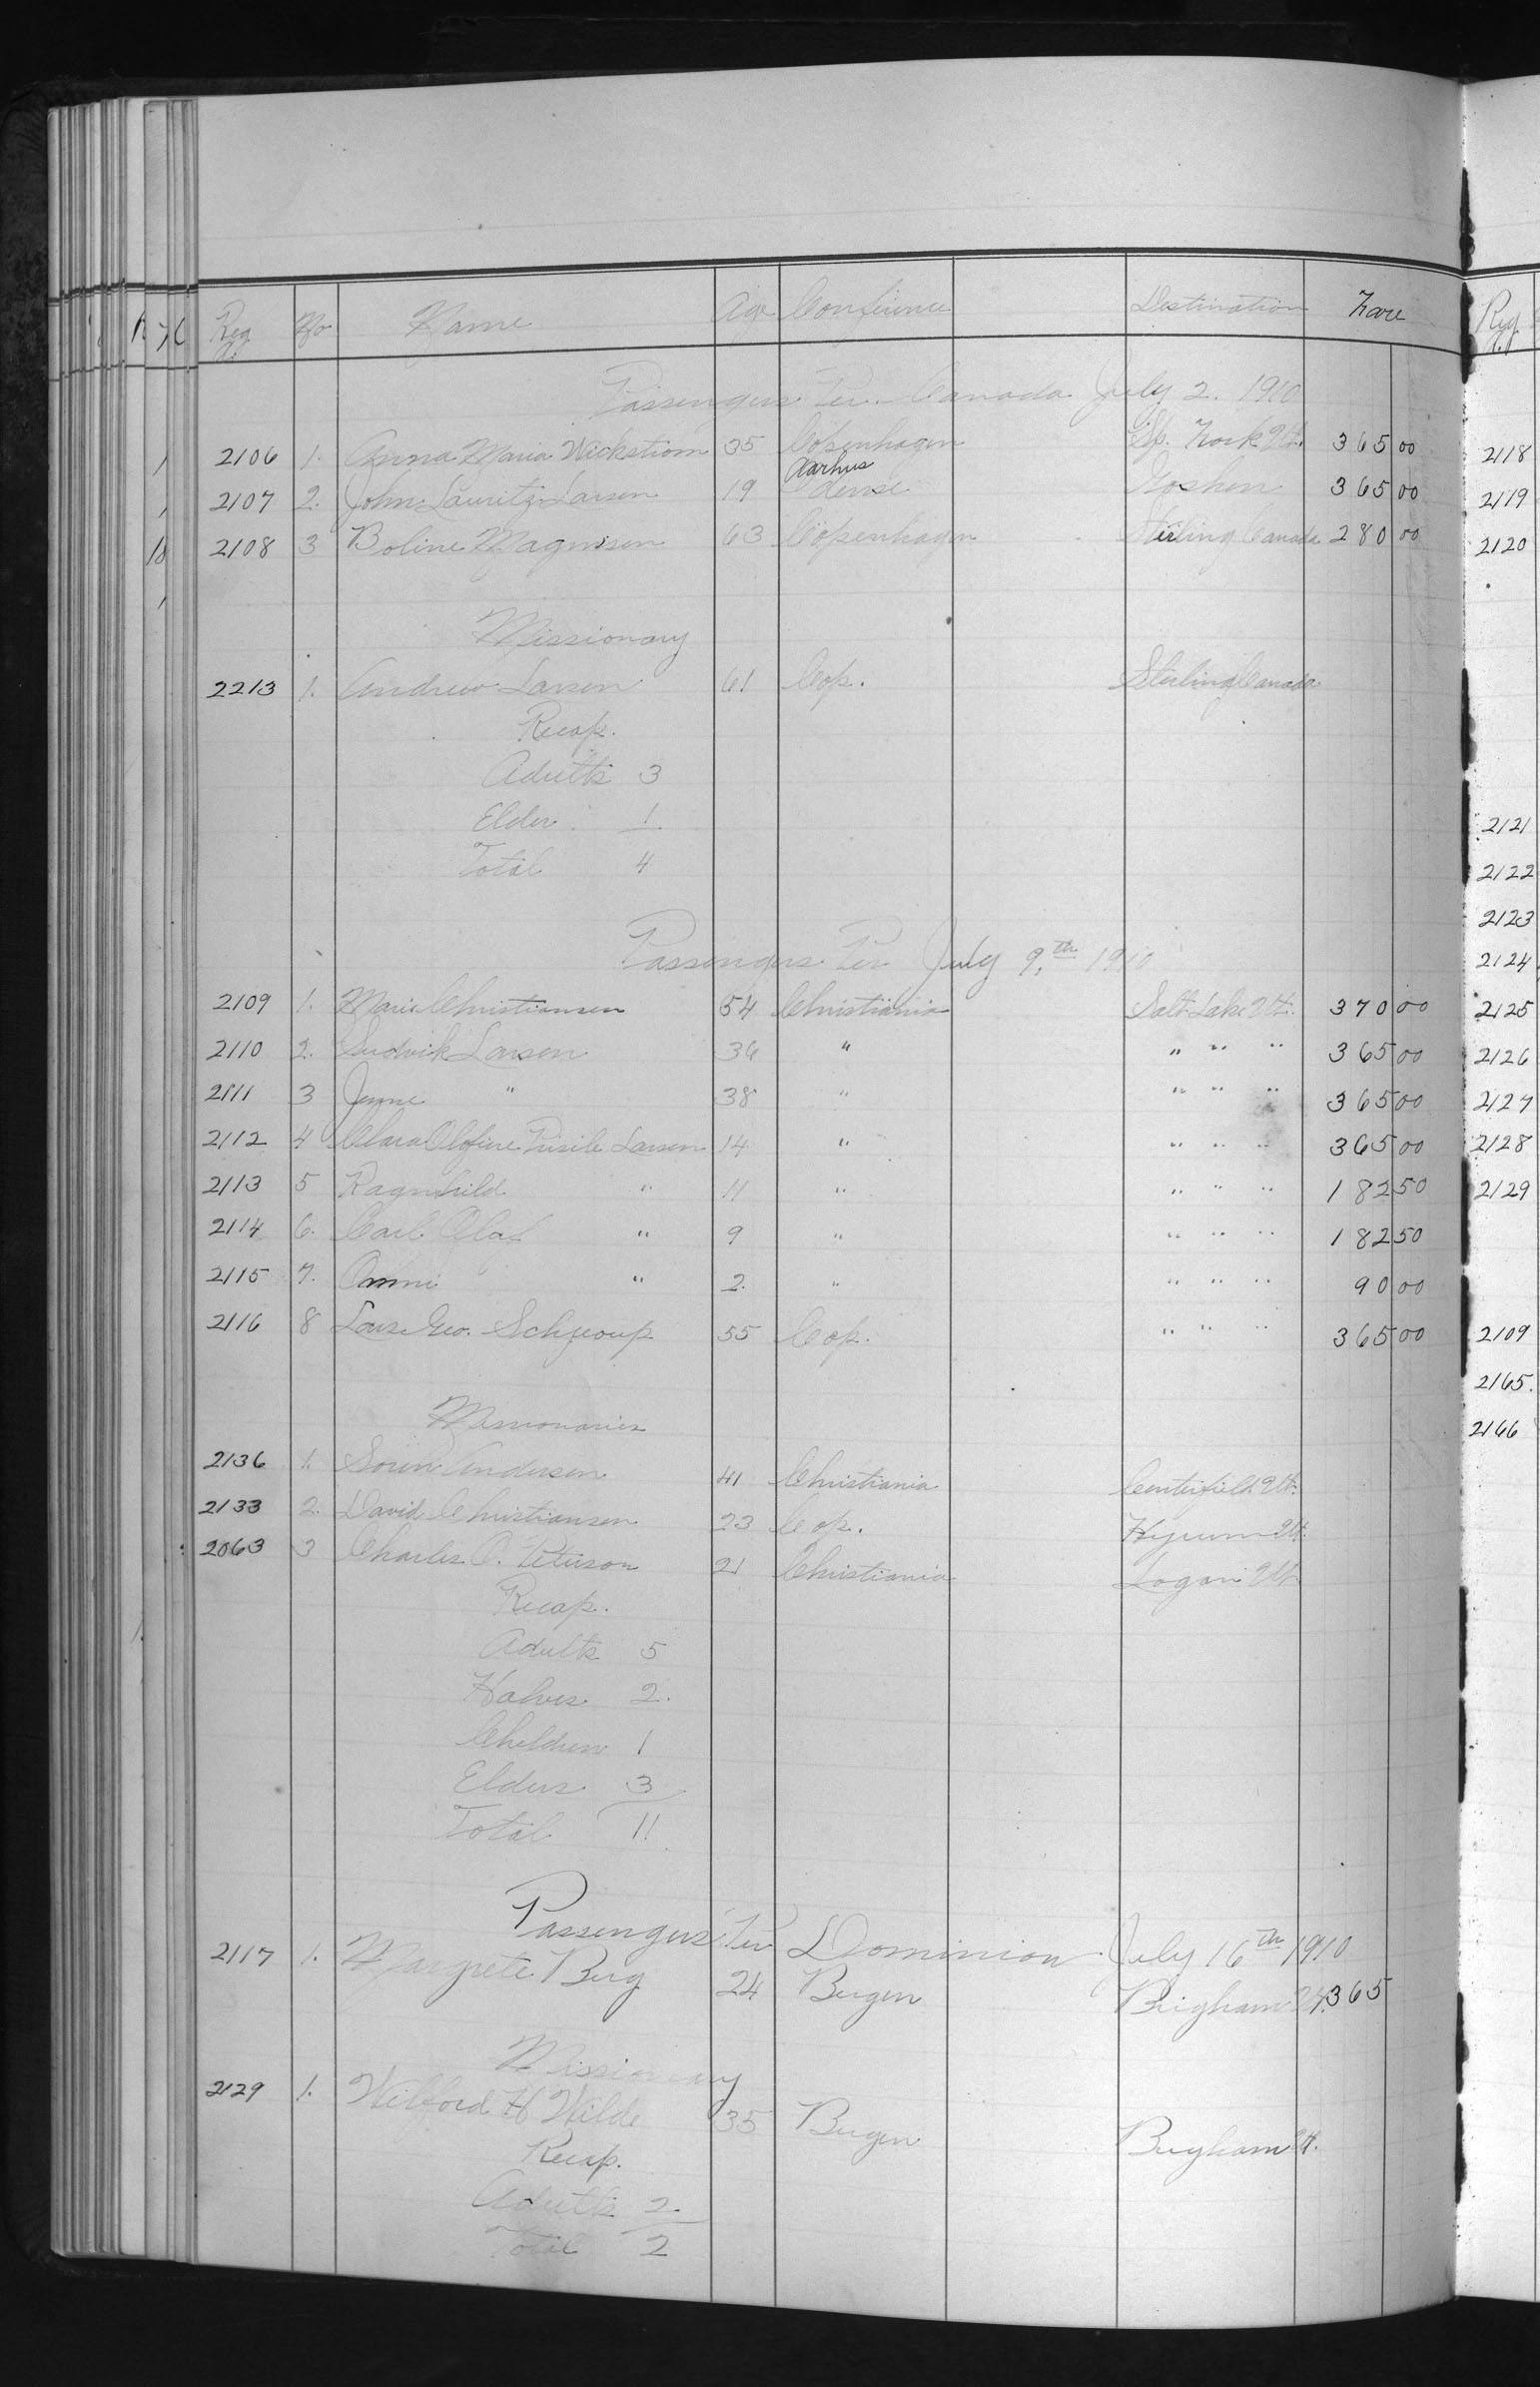 Reg. No Name Age Conference Destination Fare
Passengers Per. Canada July 2. 1910
2106 1. Anna Maria Wickstrom 35 Copenhagen Sp. Fork Ut. 365 00
Aarhus
2107 2. John Lauritz Larsen 19 Odense Goshen 365 00
2108 3 Boline Magnusen 63 Copenhagen Stirling Canada 280 00
Missionary
2213 1. Andrew Larsen 61 Cop. Stirling Canada
Recap.
Adults 3
Elder 1
Total 4
Passengers Per July 9th 1910
2109 1. Marie Christiansen 54 Christiania Salt Lake Ut. 370 00
2110 2. Ludvik Larsen 36 " " " " 365 00
2111 3 Jenne " 38 " " " " 365 00
2112 4 Clara Larsen 14 " " " " 365 00
2113 5 Ragnhild " 11 " " " " 182 50
2114 6. Carl Olaf " 9 " " " " 182 50
2115 7. Anni " 2. " " " " 90 00
2116 8 Lars Geo. Schjeoup 55 Cop. " " " 365 00
Missionaries
2136 1. Soren Andersen 41 Christiania Centerfield Ut.
2133 2. David Christiansen 23 Cop. Hyrum Ut.
2063 3 Charles O. Peterson 21 Christiania Logan Ut.
Recap.
Adults 5
Halves 2.
Children 1
Elders 3
Total 11
Passengers Per Dominion July 16th 1910
2117 1. Margrete Berg 24 Bergen Brigham Ut. 365
Missionary
2129 1. Wilford H Wilde 35 Bergen Brigham Ut.
Recap.
Adults 2
Total 2
Reg.
2118
2119
2120
2121
2122
2123
2124
2125
2126
2127
2128
2129
2109
2165.
2166